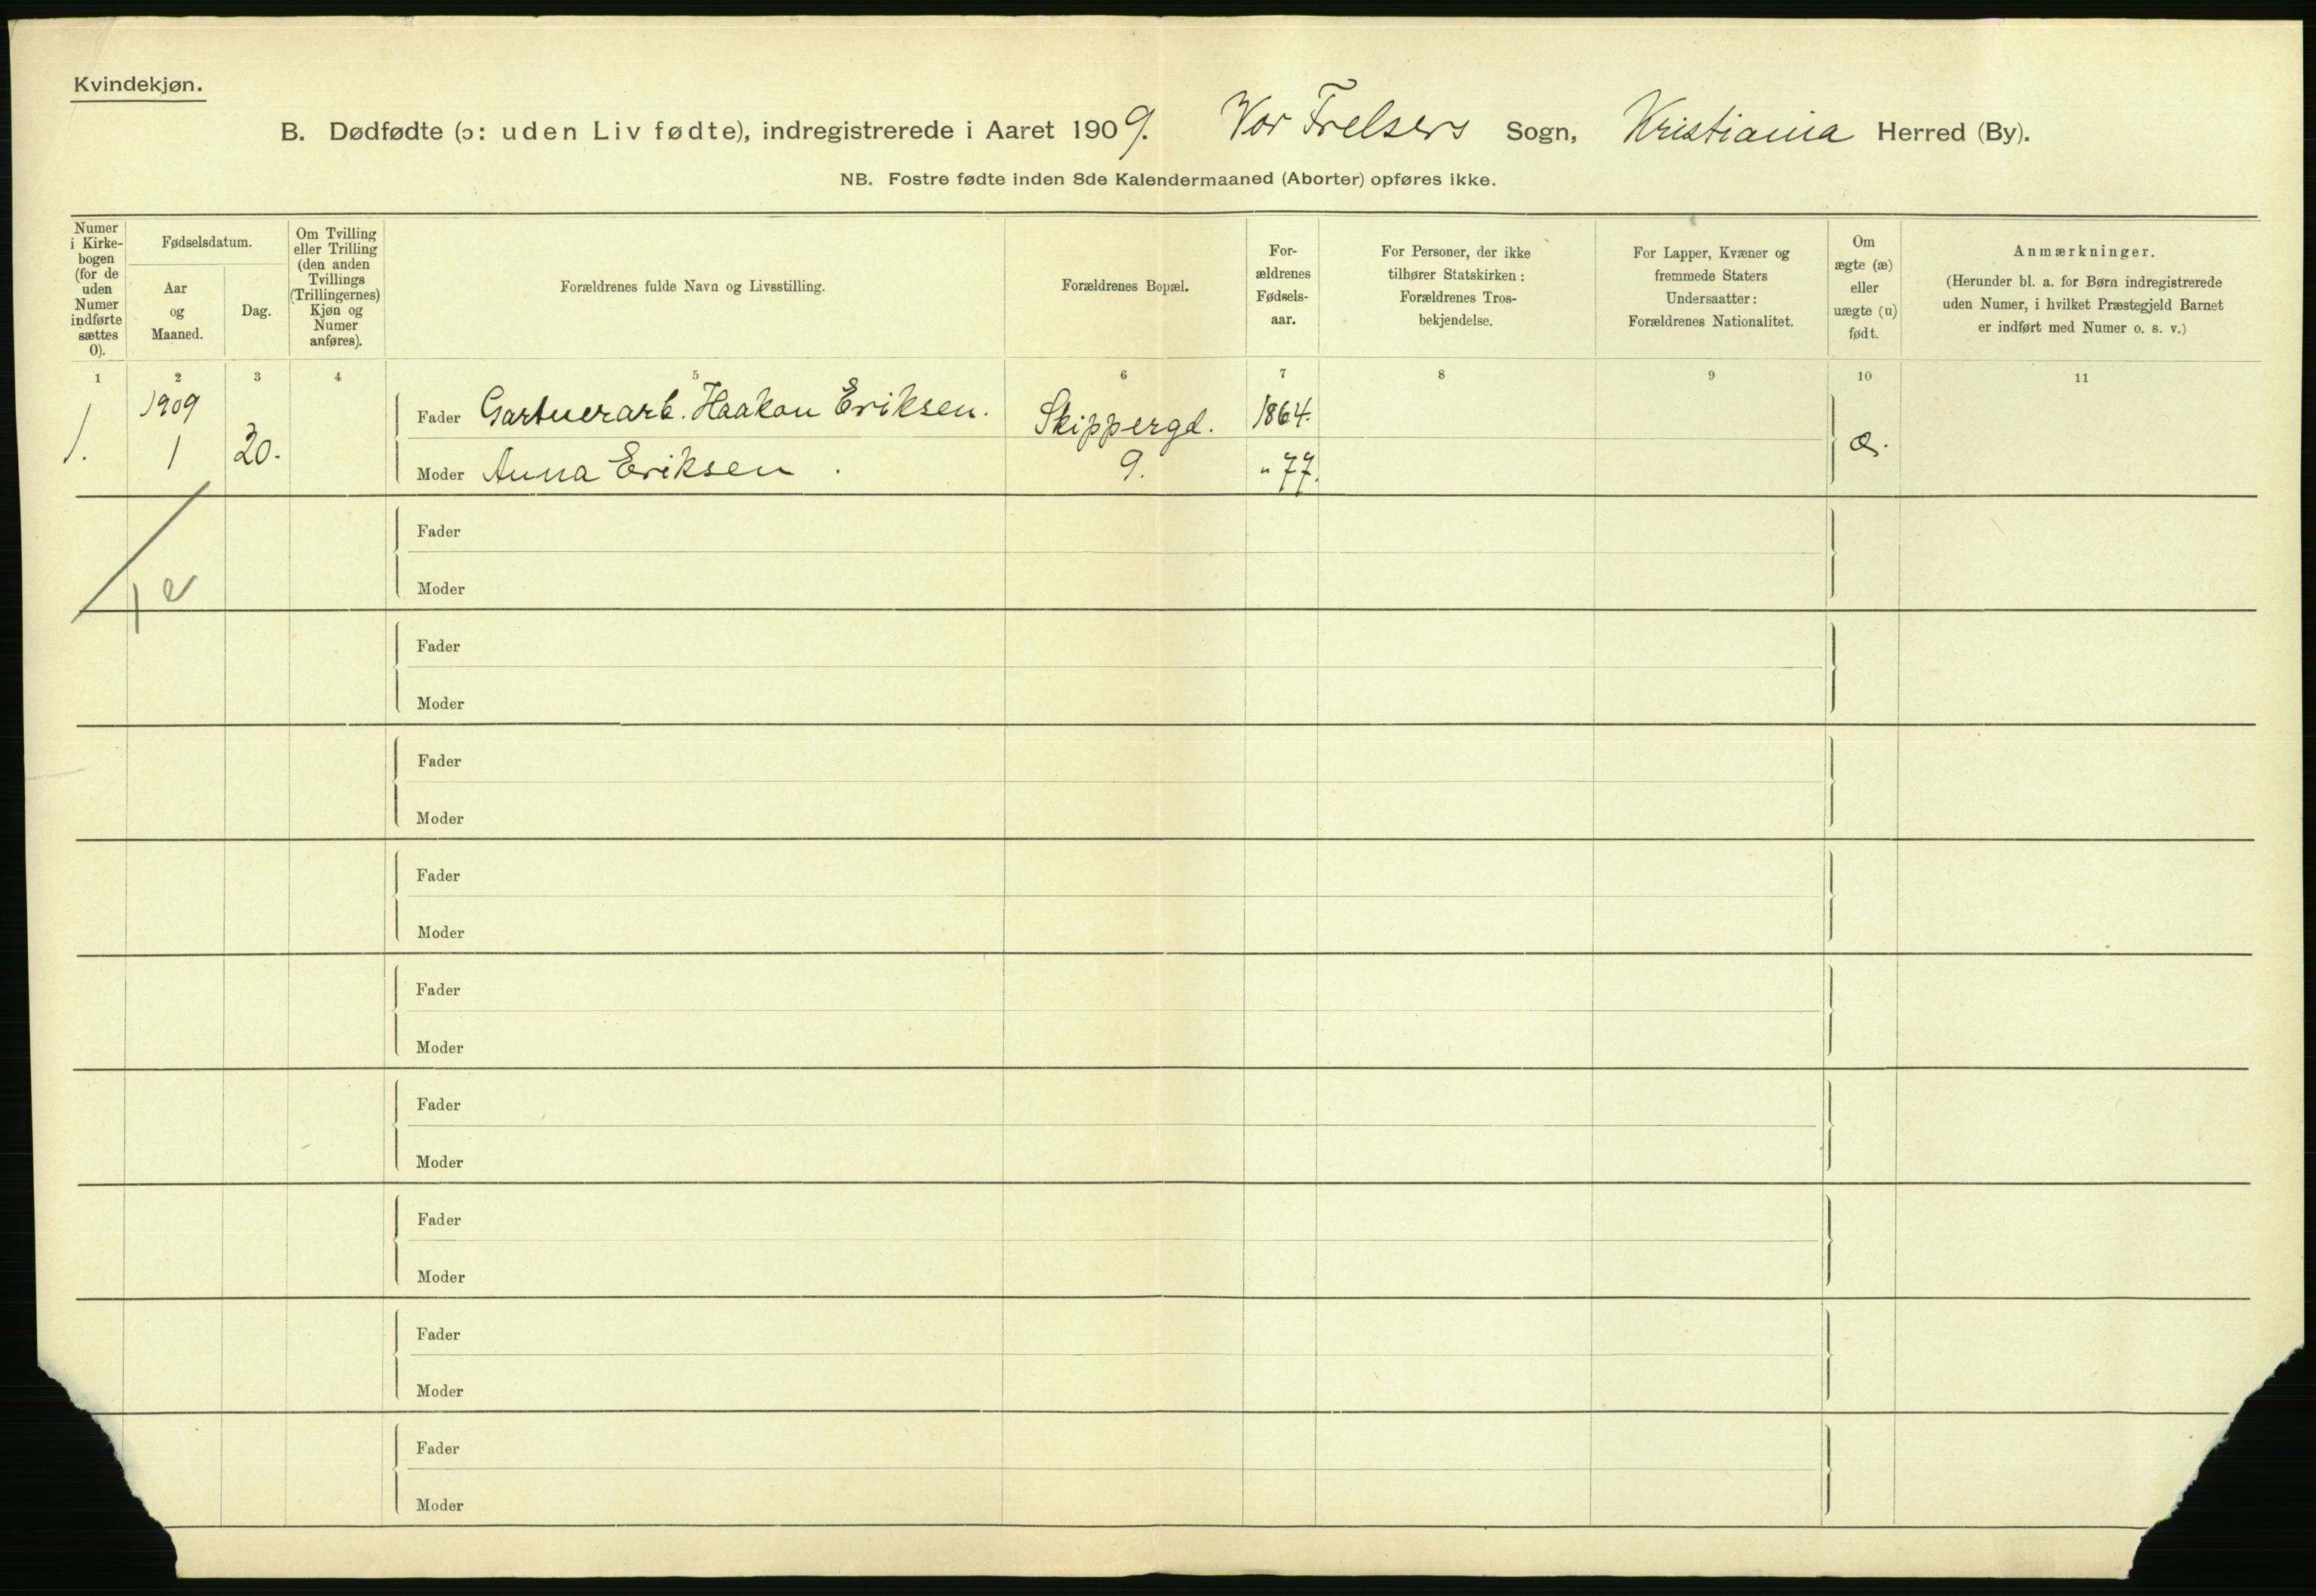 Kvindekjøn.
B. Dødfødte (ɔ: uden Liv fødte), indregistrerede i Aaret 1909. Vor Frelsers Sogn, Kristiania Herred (By).
NB. Fostre fødte inden 8de Kalendermaaned (Aborter) opføres ikke.
Numer
i Kirke-
bogen
(for de
uden
Numer
indførte
sættes
0).
Fødselsdatum.
Aar
og
Maaned.
Dag.
Om Tvilling
eller Trilling
(den anden
Tvillings
(Trillingernes)
Kjøn og
Numer
anføres).
Forældrenes fulde Navn og Livsstilling.
Forældrenes Bopæl.
For-
ældrenes
Fødsels-
aar.
For Personer, der ikke
tilhører Statskirken:
Forældrenes Tros-
bekjendelse.
For Lapper, Kvæner og
fremmede Staters
Undersaatter:
Forældrenes Nationalitet.
Om
ægte (æ)
eller
uægte (u)
født.
Anmærkninger.
(Herunder bl. a. for Børn indregistrerede
uden Numer, i hvilket Præstegjeld Barnet
er indført med Numer o. s. v.)
1 2 3 4 5 6 7 8 9 10 11
1. 1909
1 20.
Fader Gartnerarb. Haakon Eriksen. Skippergd. 1864.
Moder Anna Eriksen. 9. " 77. æ.
Fader
Moder
Fader
Moder
Fader
Moder
Fader
Moder
Fader
Moder
Fader
Moder
Fader
Moder
Fader
Moder
Fader
Moder